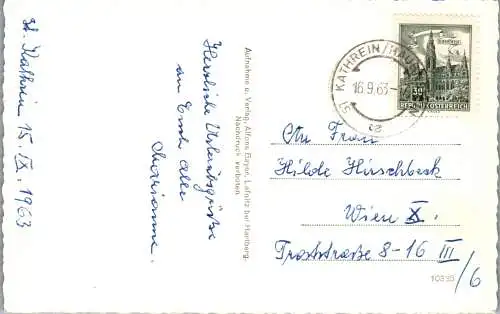 St. Kathrein 15. IX. 1963
Herzliche Urlaubsgrüße
an Euch alle
Marianne.
Aufnahme u. Verlag, Alfons Bayer, Lafnitz bei Hartberg.
Nachdruck verboten
ST. KATHREIN/HAUENSTEIN
16.9.63-
a
REPUBLIK ÖSTERREICH
An Frau
Hilde Hirschbeck
Wien X.
Troststraße 8-16 III
/6